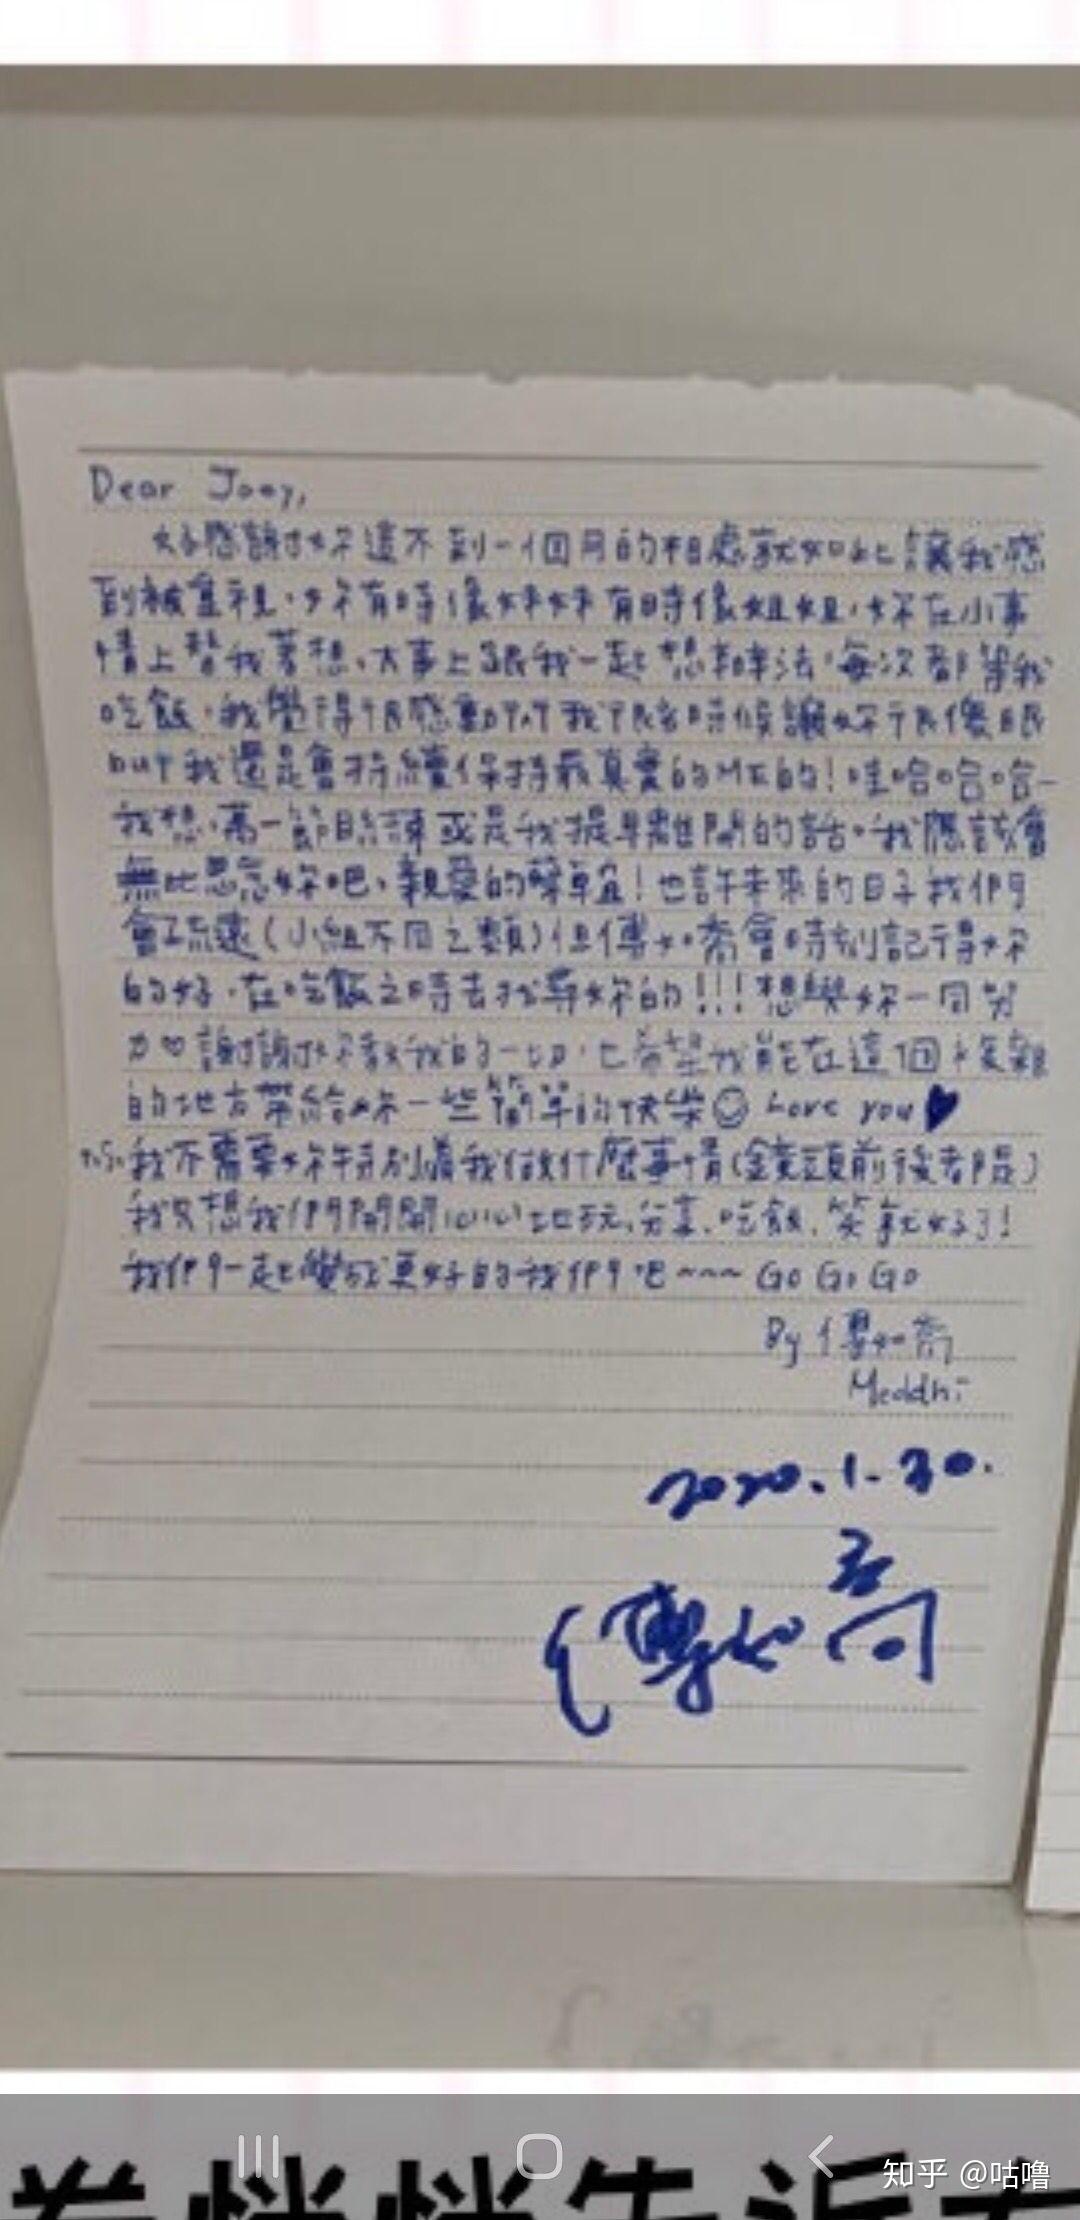 Dear Joey,
好感謝妳這不到一個月的相處就如此讓我感
到被重視,妳有時像妹妹有時像姐姐,妳在小事
情上替我著想、大事上跟我一起想辦法,每次都等我
吃飯,我覺得很感動,我很多時候讓妳很傻眼
but我還是會持續保持最真實的ME的!哇哈哈哈-
我想,萬一節目結束或是我提早離開的話,我應該會
無比思念妳吧、親愛的蔡卓宜!也許未來的日子我們
會疏遠(小組不同之類)但傅如喬會時刻記得妳
的好,在吃飯之時去找尋妳的!!!想與妳一同努
力♡謝謝妳教我的一切,也希望我能在這個複雜
的地方帶給妳一些簡單的快樂☺ Love you♥
P.S. 我不需要妳特別為我做什麼事情(鏡頭前後都是)
我只想我們開開心心地玩、分享、吃飯、笑就好了!
我們一起變成更好的我們吧~~~ GO GO GO
By 傅如喬
2020.1.30.
傅如喬
知乎 @咕噜